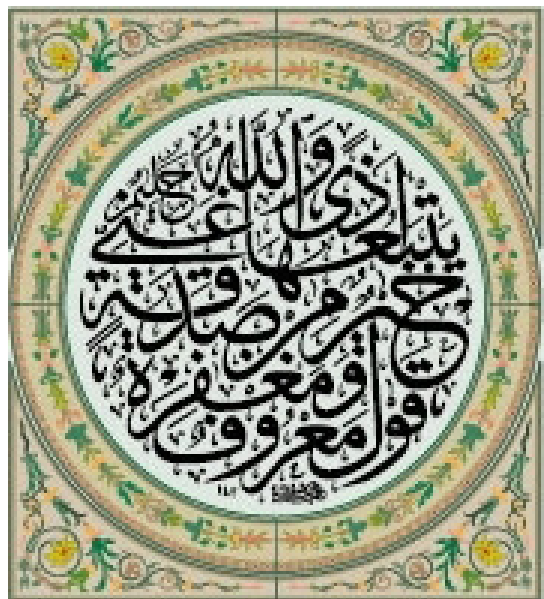 قَوْلٌ مَعْرُوفٌ وَمَغْفِرَةٌ
خَيْرٌ مِنْ صَدَقَةٍ
يَتْبَعُهَا أَذًى وَاللَّهُ غَنِيٌّ حَلِيمٌ